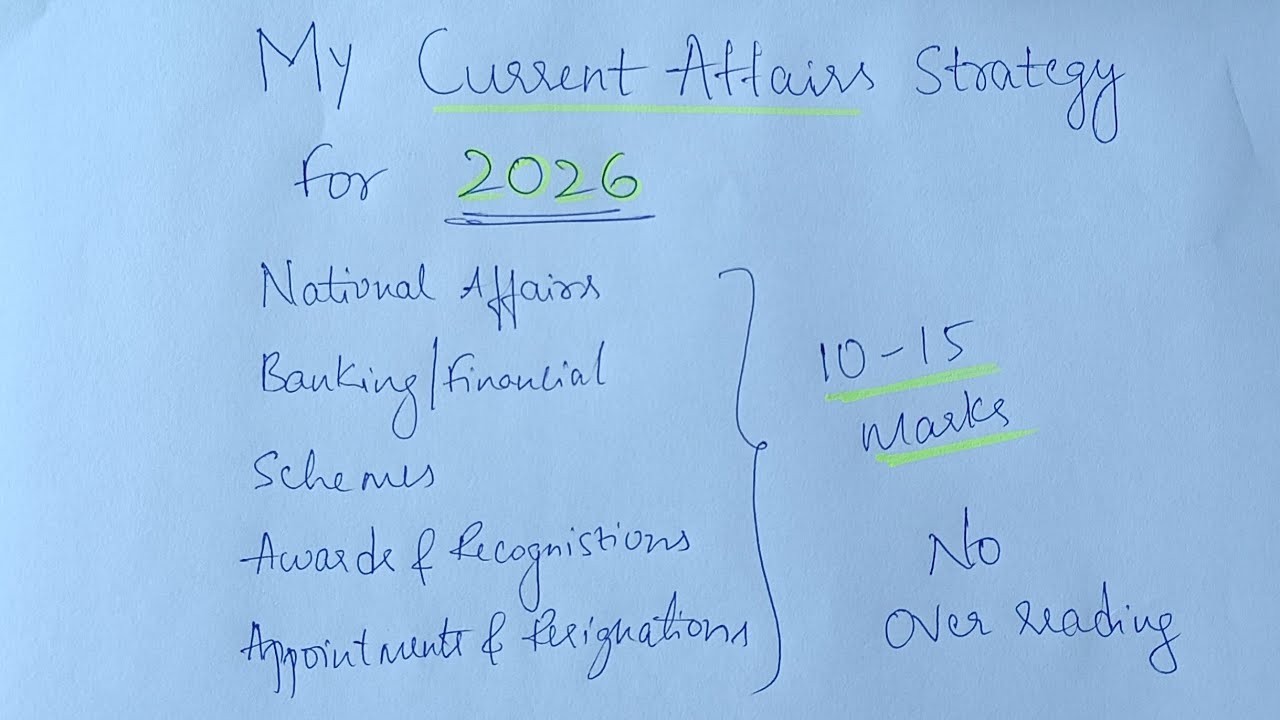 My Current Affairs Strategy
for 2026
National Affairs
Banking/Financial
Schemes
Awards & Recognistions
Appointments & Resignations
10-15
Marks
No
Over reading